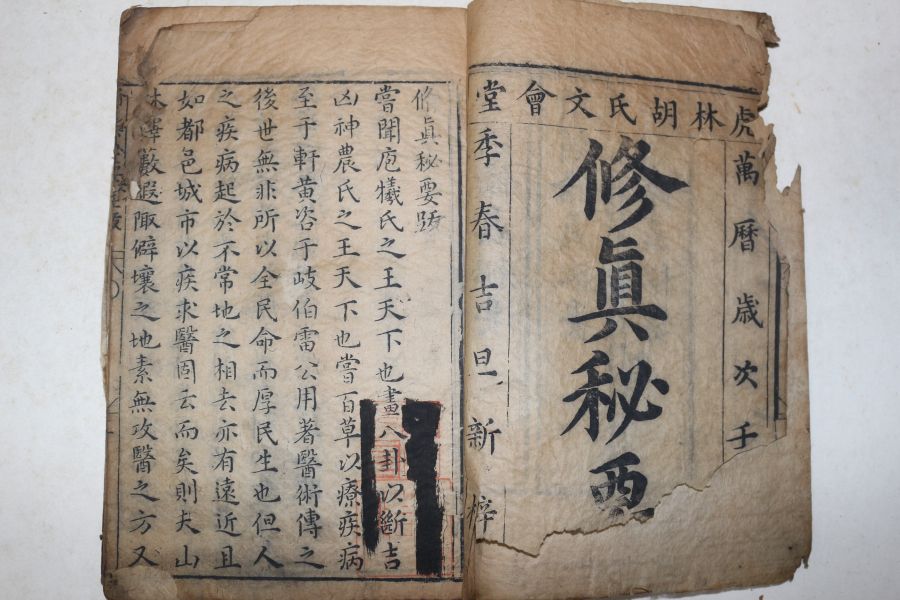 虎林胡氏文會堂
萬曆歲次壬
修眞秘要
季春吉旦新梓
修眞秘要
嘗聞庖犧氏之王天下也畫八卦以斷吉
凶神農氏之王天下也嘗百草以療疾病
至于軒黃咨于岐伯雷公用著醫術傳之
後世無非所以全民命而厚民生也但人
之疾病起於不常地之相去亦有遠近且
如都邑城市以疾求醫固云而矣則夫山
林澤藪遐陬僻壤之地素無攻醫之方又